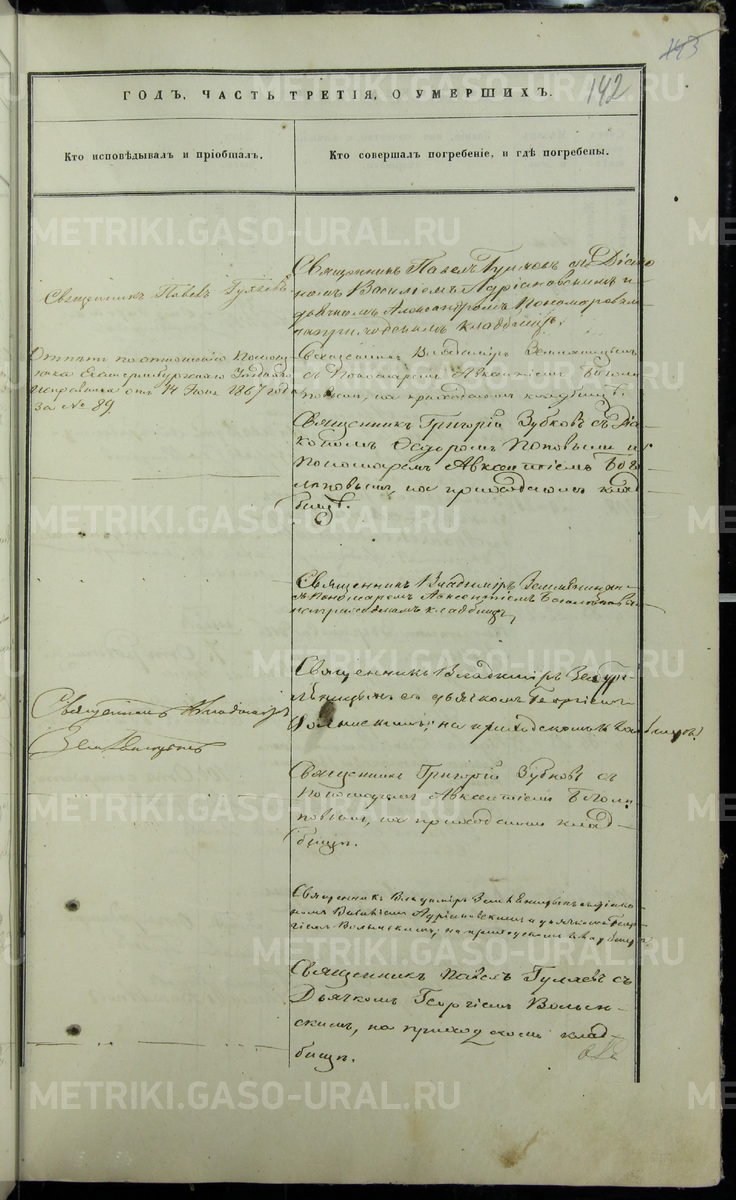 143
142
ГОДЪ, ЧАСТЬ ТРЕТІЯ, О УМЕРШИХЪ.
Кто исповѣдывалъ и пріобщалъ.
Кто совершалъ погребеніе, и гдѣ погребены.
Священникъ Павелъ Гуляевъ
Священникъ Павелъ Гуляевъ съ Діако
номъ Василіемъ Адріановскимъ и
дьячкомъ Александромъ Пономаревымъ
на приходскомъ кладбищѣ.
Отпѣтъ по отношенію Помощ
ника Екатеринбургскаго Уѣзднаго
Исправника отъ 14 1867 года
за № 89
Священникъ Владиміръ Земляницынъ
съ Пономаремъ Авксентіемъ Боголѣ
повымъ, на приходскомъ кладбищѣ.
Священникъ Григорій Зубковъ съ Діа
кономъ Ѳедоромъ Поповымъ и
Пономаремъ Авксентіемъ Бого
лѣповымъ, на приходскомъ клад
бищѣ.
Священникъ Владиміръ Земляницынъ
съ Пономаремъ Авксентіемъ Боголѣповымъ
на приходскомъ кладбищѣ
Священникъ Владиміръ
Земляницынъ
Священникъ Владиміръ Земля
ницынъ съ дьячкомъ Георгіемъ
Волынскимъ, на приходскомъ кладбищѣ.
Священникъ Григорій Зубковъ съ
Пономаремъ Авксентіемъ Боголѣ
повымъ, на приходскомъ клад-
бищѣ.
Священникъ Владиміръ Земляницынъ съ діако
номъ Василіемъ Адріановскимъ и дьячкомъ Геор
гіемъ Волынскимъ, на приходскомъ кладбищѣ
Священникъ Павелъ Гуляевъ съ
Дьячкомъ Георгіемъ Волын-
скимъ, на приходскомъ клад-
бищѣ.
METRIKI.GASO-URAL.RU